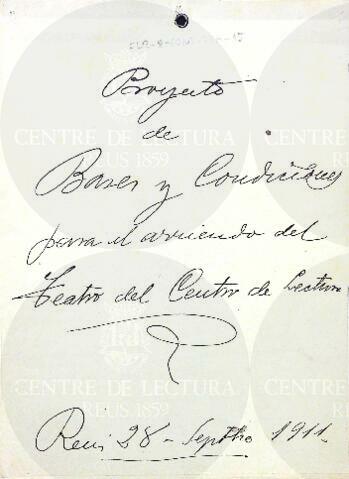 Proyecto
de
Bases y Condiciones
para el arriendo del
Teatro del Centro de Lectura
Reus 28 - Septbre 1911.
CENTRE DE LECTURA
REUS 1859
CENTRE DE LECTURA
REUS 1859
CENTRE DE LECTURA
REUS 1859
CENTRE DE LECTURA
REUS 1859